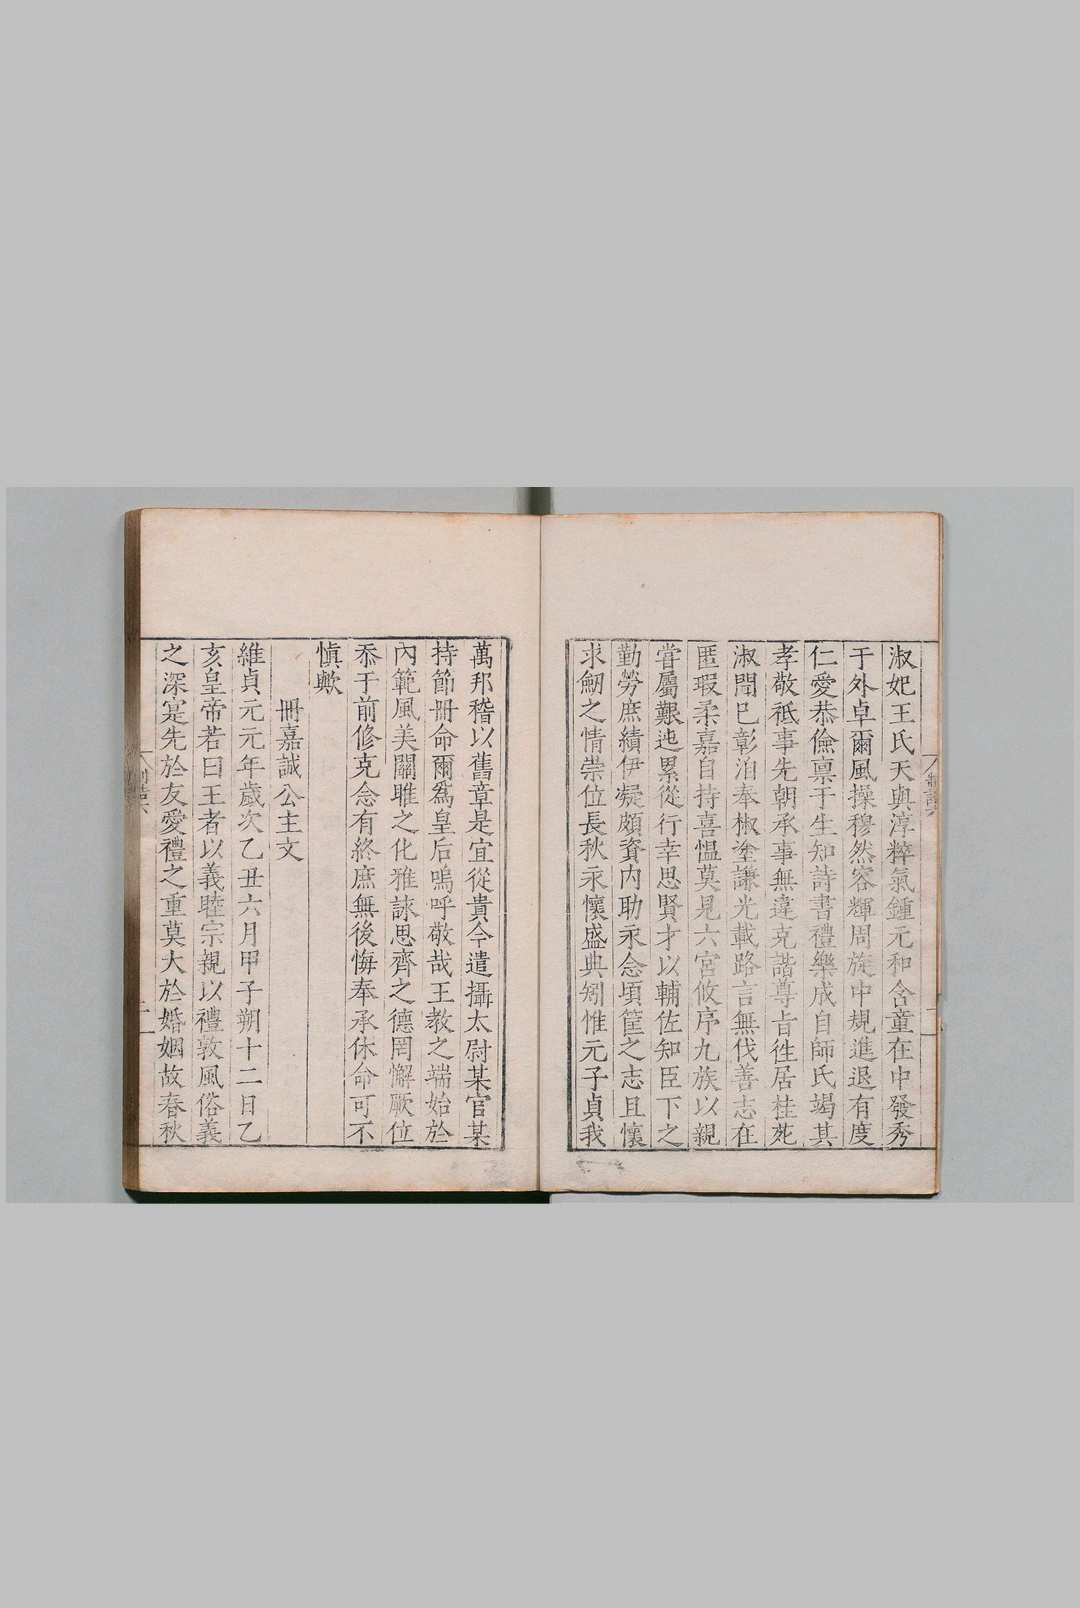 淑妃王氏天與淳粹氣鍾元和含童在中發秀
于外卓爾風操穆然容輝周旋中規進退有度
仁愛恭儉禀于生知詩書禮樂成自師氏竭其
孝敬祗事先朝承事無違克諧尊旨徃居桂苑
淑聞巳彰洎奉椒塗謙光載路言無伐善志在
匿瑕柔嘉自持喜慍莫見六宮攸序九族以親
嘗屬艱迍累從行幸思賢才以輔佐知臣下之
勤勞庶績伊凝頗資內助永念頃筐之志且懷
求劒之情崇位長秋永懷盛典矧惟元子貞我
萬邦稽以舊章是宜從貴今遣攝太尉某官某
持節冊命爾爲皇后嗚呼敬哉王教之端始於
內範風美關雎之化雅詠思齊之德罔懈厥位
忝于前修克念有終庶無後悔奉承休命可不
愼歟
冊嘉誠公主文
維貞元元年歲次乙丑六月甲子朔十二日乙
亥皇帝若曰王者以義睦宗親以禮敦風俗義
之深寔先於友愛禮之重莫大於婚姻故春秋